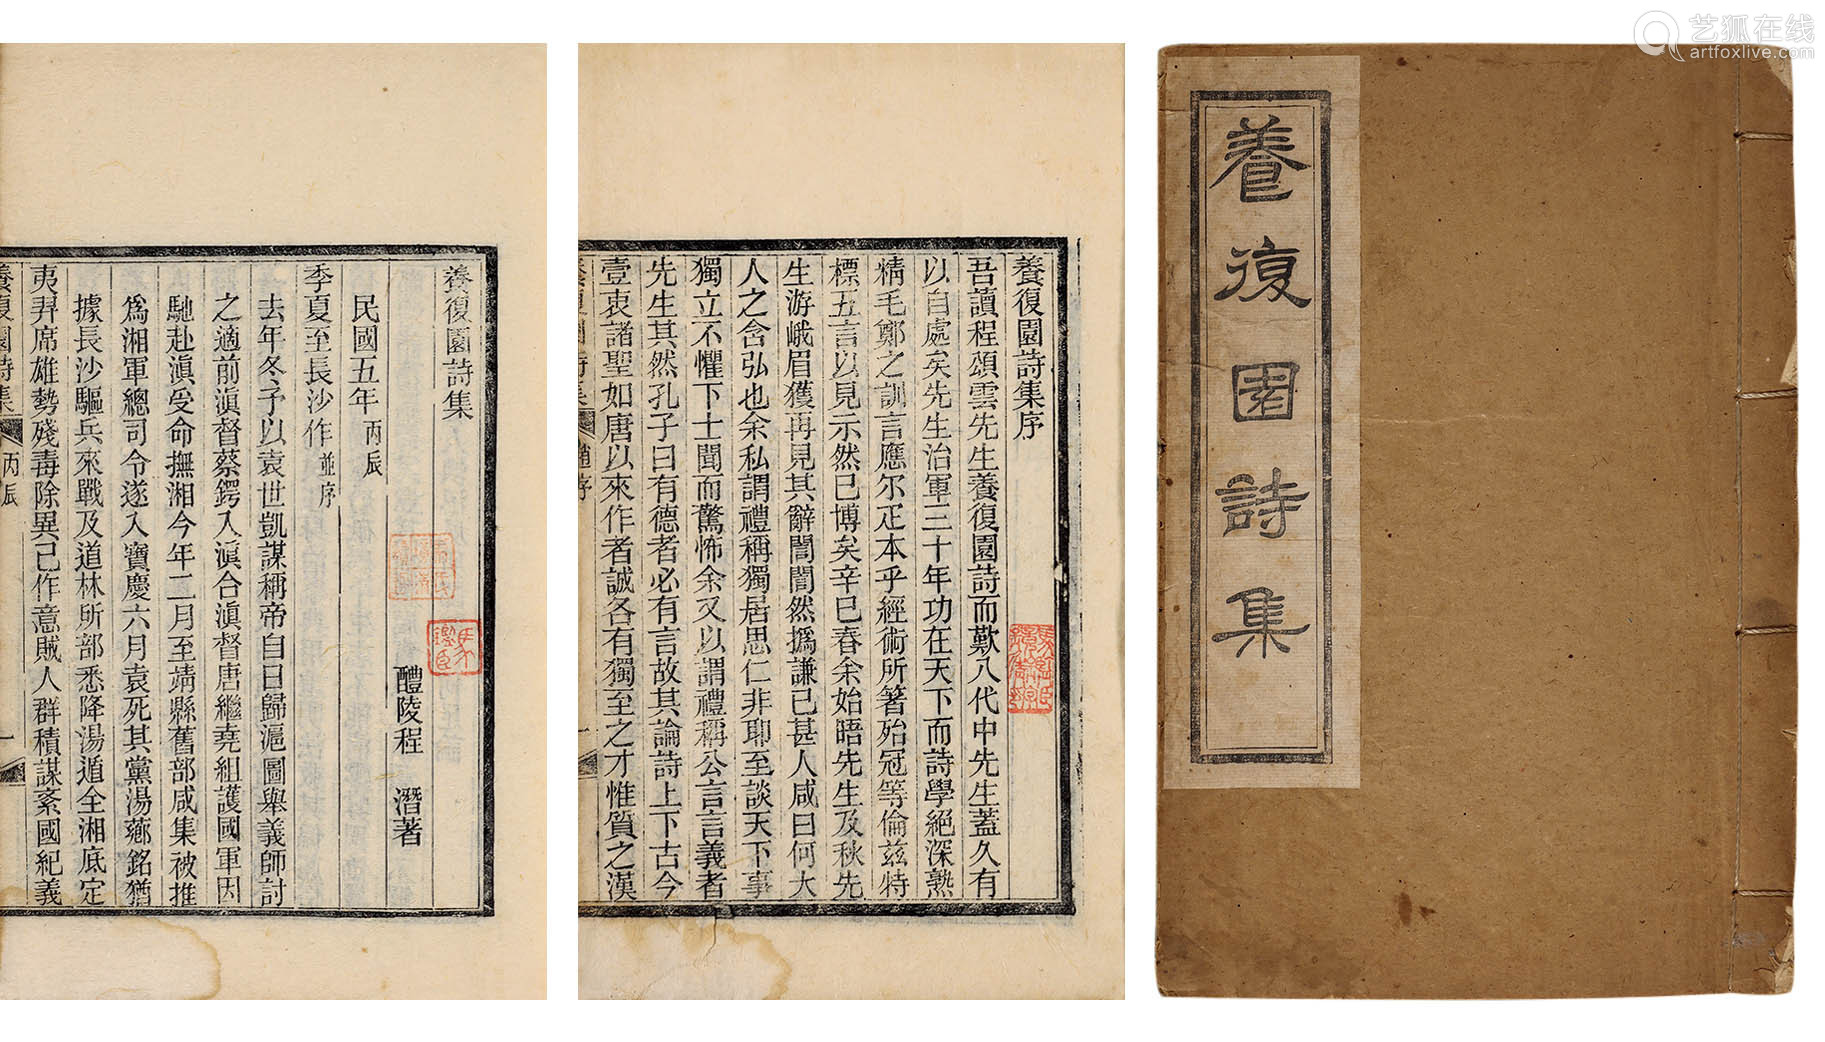 艺狐在线
artfoxlive.com
養復園詩集
養復園詩集序
吾讀程頌雲先生養復園詩而歎八代中先生蓋久有
以自處矣先生治軍三十年功在天下而詩學絕深熟
精毛鄭之訓言應尔疋本乎經術所箸殆冠等倫兹特
標五言以見示然已博矣辛巳春余始晤先生及秋先
生游峨眉獲再見其辭誾誾然撝謙己甚人咸曰何大
人之含弘也余私謂禮稱獨居思仁非耶至談天下事
獨立不懼下士聞而驚怖余又以謂禮稱公言言義者
先生其然孔子曰有德者必有言故其論詩上下古今
壹衷諸聖如唐以來作者誠各有獨至之才惟質之漢
養復園詩集
趙序
一
養復園詩集
醴陵程 潛著
民國五年丙辰
季夏至長沙作並序
去年冬予以袁世凱謀稱帝自日歸滬圖舉義師討
之適前滇督蔡鍔入滇合滇督唐繼堯組護國軍因
馳赴滇受命撫湘今年二月至靖縣舊部咸集被推
爲湘軍總司令遂入寶慶六月袁死其黨湯薌銘猶
據長沙驅兵來戰及道林所部悉降湯遁全湘底定
夷羿席雄勢殘毒除異己作意賊人群積謀紊國紀義
養復園詩集
丙辰
一